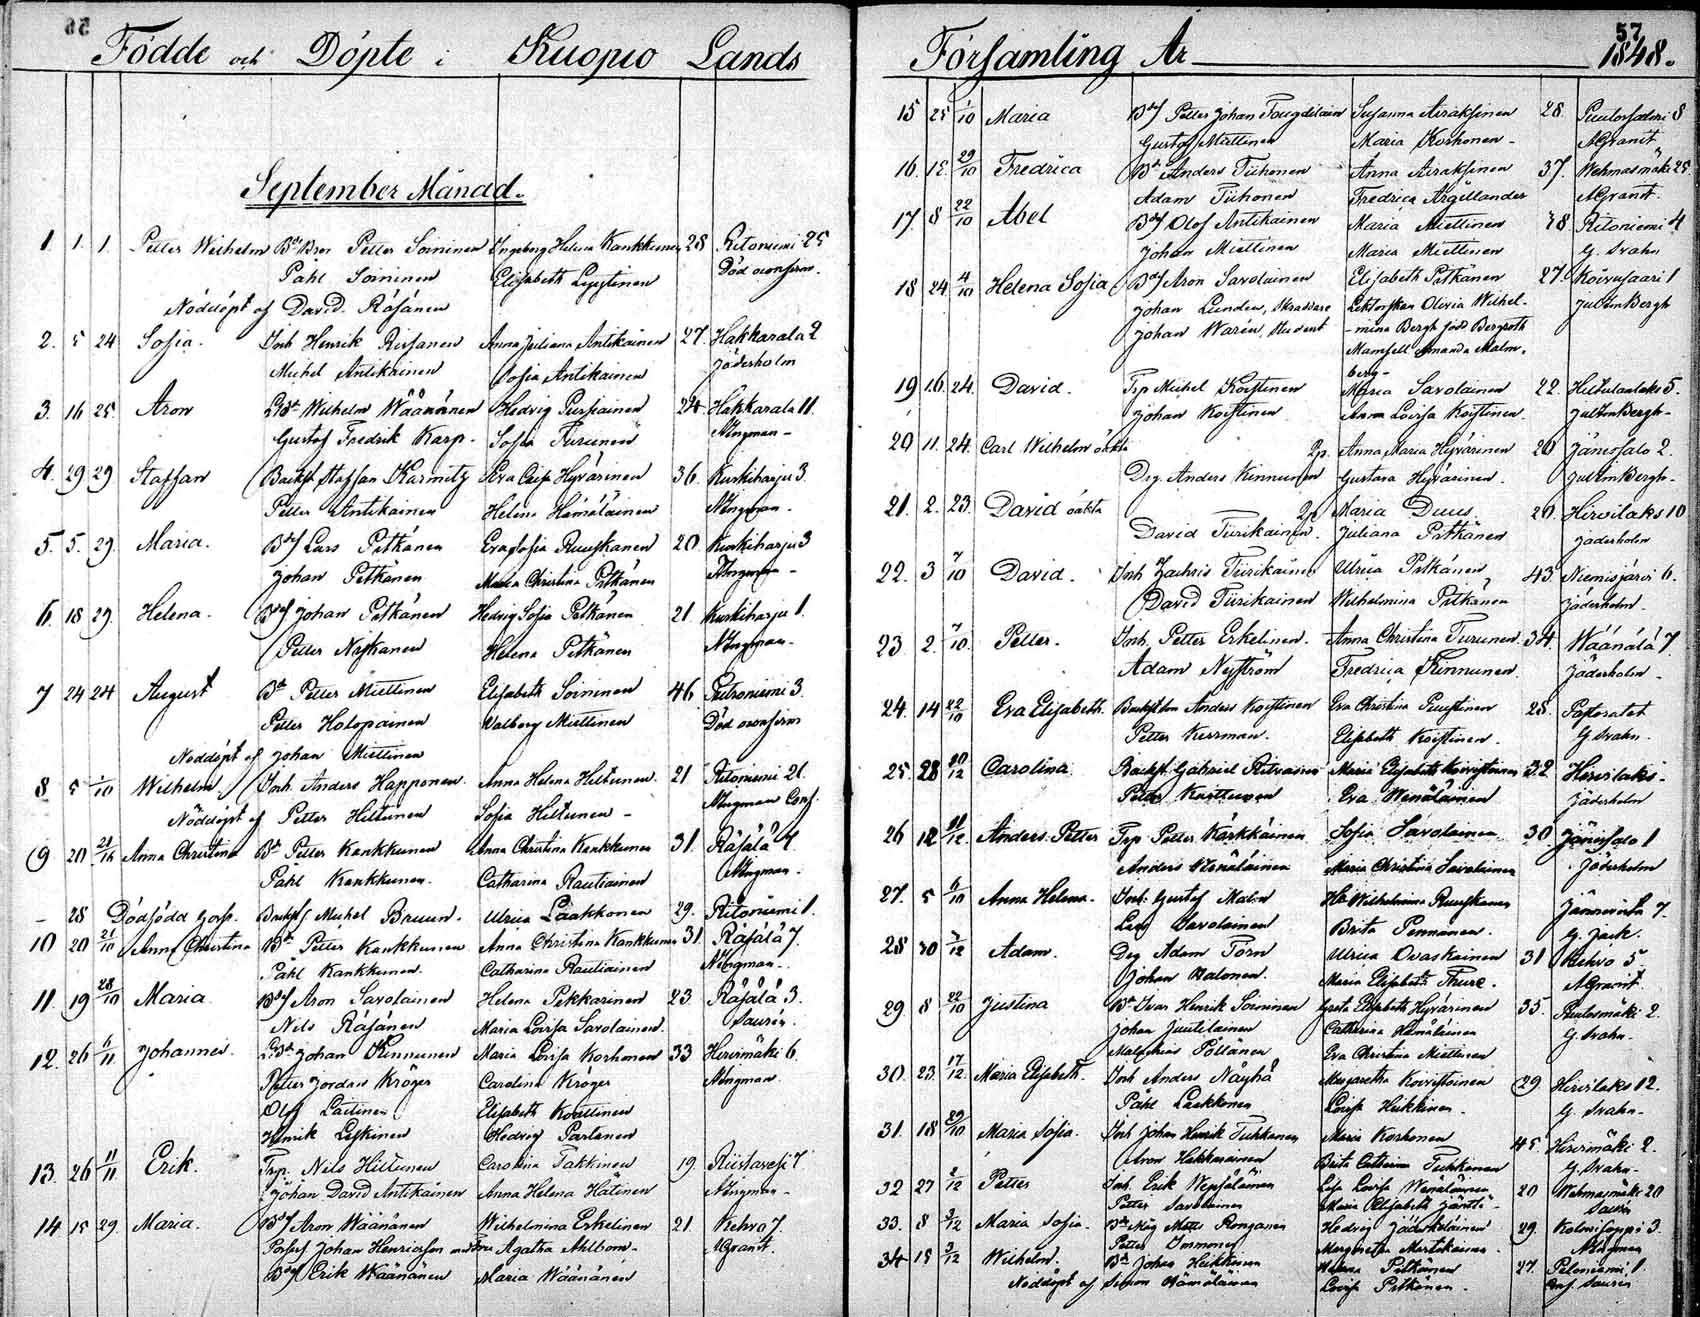 56
Födde och Döpte i Kuopio Lands
September Månad.
1. 1. 1. Petter Wilhelm Bdes Bror Petter Soininen Ingeborg Helena Kankkunen 28 Ritoniemi 25
Pahl Soininen Elisabeth Lyytinen Död oconfirm.
Nöddöpt af David Räsänen
2. 5 24 Sofia. Inh Henrik Rissanen Anna Juliana Antikainen 27. Hakkarala 2
Michel Antikainen Sofia Antikainen Jäderholm
3. 16 25 Aron Wilhelm Wäänänen Hedvig Pursiainen 24 Hakkarala 11.
Gustaf Fredrik Karp. Sofia Turunen
4. 29 29 Staffan Backst Staffan Karmitz Eva Caisa Hyvärinen 36. Kurkiharju 3.
Petter Antikainen Helena Hämäläinen
5. 5. 29. Maria. Bds Lars Pitkänen Eva Sofia Ruuskanen 20. Kurkiharju 3
Johan Pitkänen Maria Christina Pitkänen
6. 18 29. Helena. Bds Johan Pitkänen Hedvig Sofia Pitkänen 21. Kurkiharju 1.
Petter Niskanen Helena Pitkänen
7 24 24 August Bd Petter Miettinen Elisabeth Soininen 46 3.
Petter Holopainen Valborg Miettinen Död oconfirm
Nöddöpt af Johan Miettinen
8 5 1/10 Wilhelm Inh. Anders Happonen. Anna Helena Hiltunen. 21 Ritoniemi 21.
Nöddöpt af Petter Hiltunen Sofia Hiltunen -
9 20 Anna Christina Bd Petter Kankkunen Anna Christina Kankkunen 31. Räsälä 7.
Pahl Kankkunen. Catharina Rautiainen
- 28 Dödfödd goss. Michel Bruun. Ulrica Laakkonen 29. Ritoniemi 1.
10 20 21/10 Anna Christina Bd Petter Kankkunen Anna Christina Kankkunen 31. Räsälä 7.
Pahl Kankkunen. Catharina Rautiainen
11. 19 28/10 Maria. Bds Aron Savolainen Helena Pekkarinen 23. Räsälä 3.
Nils Räsänen Maria Lovisa Savolainen. Saurén.
12. 26 6/11 Johannes. Johan Kinnunen Maria Lovisa Korhonen 33 Hirvimäki 6.
Petter Jordan Kröger Carolina Kröger
Olof Laitinen Elisabeth Koistinen
Henrik Leskinen Hedvig Partanen
13. 26 11/11 Erik. Trp. Nils Hiltunen Carolina Takkinen 19. Riistavesi 7
Johan David Antikainen Anna Helena Hätinen
14. 15 29. Maria. Bds Aron Wäänänen Wilhelmina Eskelinen 21 Kehvo 7.
Johan Henricsson Agatha Ahlbom. AGranit.
Bds Erik Wäänänen Maria Wäänänen
57
Församling År 1848.
15 25 1/10 Maria Bds Petter Johan Fougdelain Susanna Airaksinen 28. 8
Gustaf Miettinen Maria Korhonen - AGranit
16. 15. 29/10 Fredrica Bd Anders Tiihonen Anna Airaksinen 37. Wehmasmäki 25
Adam Tiihonen Fredrica Argillander AGranit.
17. 8 22/10 Abel Bds Olof Antikainen Maria Miettinen 38 Ritoniemi 4
Johan Miettinen Maria Miettinen G. Svahn
18 24 4/10 Helena Sofia Bds Aron Savolainen Elisabeth Pitkänen 27. Koivusaari 1
Johan Lunden, Skräddare Lektorskan Olivia Wilhel-
Johan Warén, Student -mina Bergh född Bergroth
Mamsell Amanda Malm-
berg-
19 16. 24. David. Trp Michel Koistinen Maria Savolainen 22. 5.
Johan Koistinen Anna Lovisa Koistinen.
20 11. 24. Carl Wilhelm oäkta Anna Maria Hyvärinen 20 Jänissalo 2.
Drg Anders Kinnunen Gustava Hyvärinen.
21. 2. 23. David oäkta Maria Duus 20. Hirvilaks 10
David Tiirikainen. Juliana Pitkänen Jäderholm
22. 3 7/10 David. Inh Zachris Tiirikainen Ulrica Pitkänen 43. Niemisjärvi 6.
David Tiirikainen Wilhelmina Pitkänen Jäderholm.
23 2. 7/10. Petter. Inh. Petter Eskelinen. Anna Christina Turunen 34. Wäänälä 7
Adam Nyström Fredrica Kinnunen Jäderholm.
24. 14 22/10 Eva Elisabeth. Anders Koistinen Eva Christina Puustinen 28. Pastoratet
Petter Kerrman. Elisabeth Koistinen. G. Svahn.
25 28 Carolina. Backst. Gabriel Ritvanen Maria Elisabeth Koivistoinen 32 Hirvilaks.
Petter Karttunen Eva Wenäläinen Jäderholm
26 12 Anders Petter Trp Petter Kärkkäinen Sofia Savolainen 30. Jänissalo 1
Anders Wenäläinen Maria Christina Savolainen Jäderholm
27. 5 6/10 Anna Helena. Inh. Gustaf Malm Wilhelmina Ruuskanen Jännevirta 7.
Lars Savolainen Brita Pennanen. G. Jack.
28 30 Adam. Drg Adam Törn Ulrica Ovaskainen 31 Kehvo 5
Johan Halonen. Maria Elisabeth Thure. AGranit.
29 8 22/10 Justina Bd Ivar Henrik Soininen Greta Elisabeth Hyvärinen 35. 2.
Johan Juutilainen Catharina Hämäläinen G. Svahn.
Malachias Pöllänen Eva Christina Miettinen
30. 23. 17/12 Maria Elisabeth. Inh Anders Näyhä Margaretha Koivistoinen 29 Hirvilaks 12.
Påhl Laakkonen Lovisa Heikkinen. G. Svahn.
31. 18 29/10 Maria Sofia. Inh Johan Henrik Tuhkanen Maria Korhonen 45 Hirvimäki 2.
Aron Hakkarainen Brita Catharina Tuhkanen G. Svahn.
32 27 Petter Inh. Erik Wepsäläinen Lisa Lovisa Wenäläinen 20 Wehmasmäki 20
Petter Savolainen Maria Elisabeth Saurén
33. 8 3/12 Maria Sofia. Matts Ronganen Hedvig Jääskeläinen 29. 3.
Petter Immonen Margaretha Martikainen.
34 15 3/12 Wilhelm. Bd Johan Heikkinen Helena Pitkänen 27. Peloniemi 1
Nöddöpt af Simon Hämäläinen Lovisa Pitkänen. Saurén